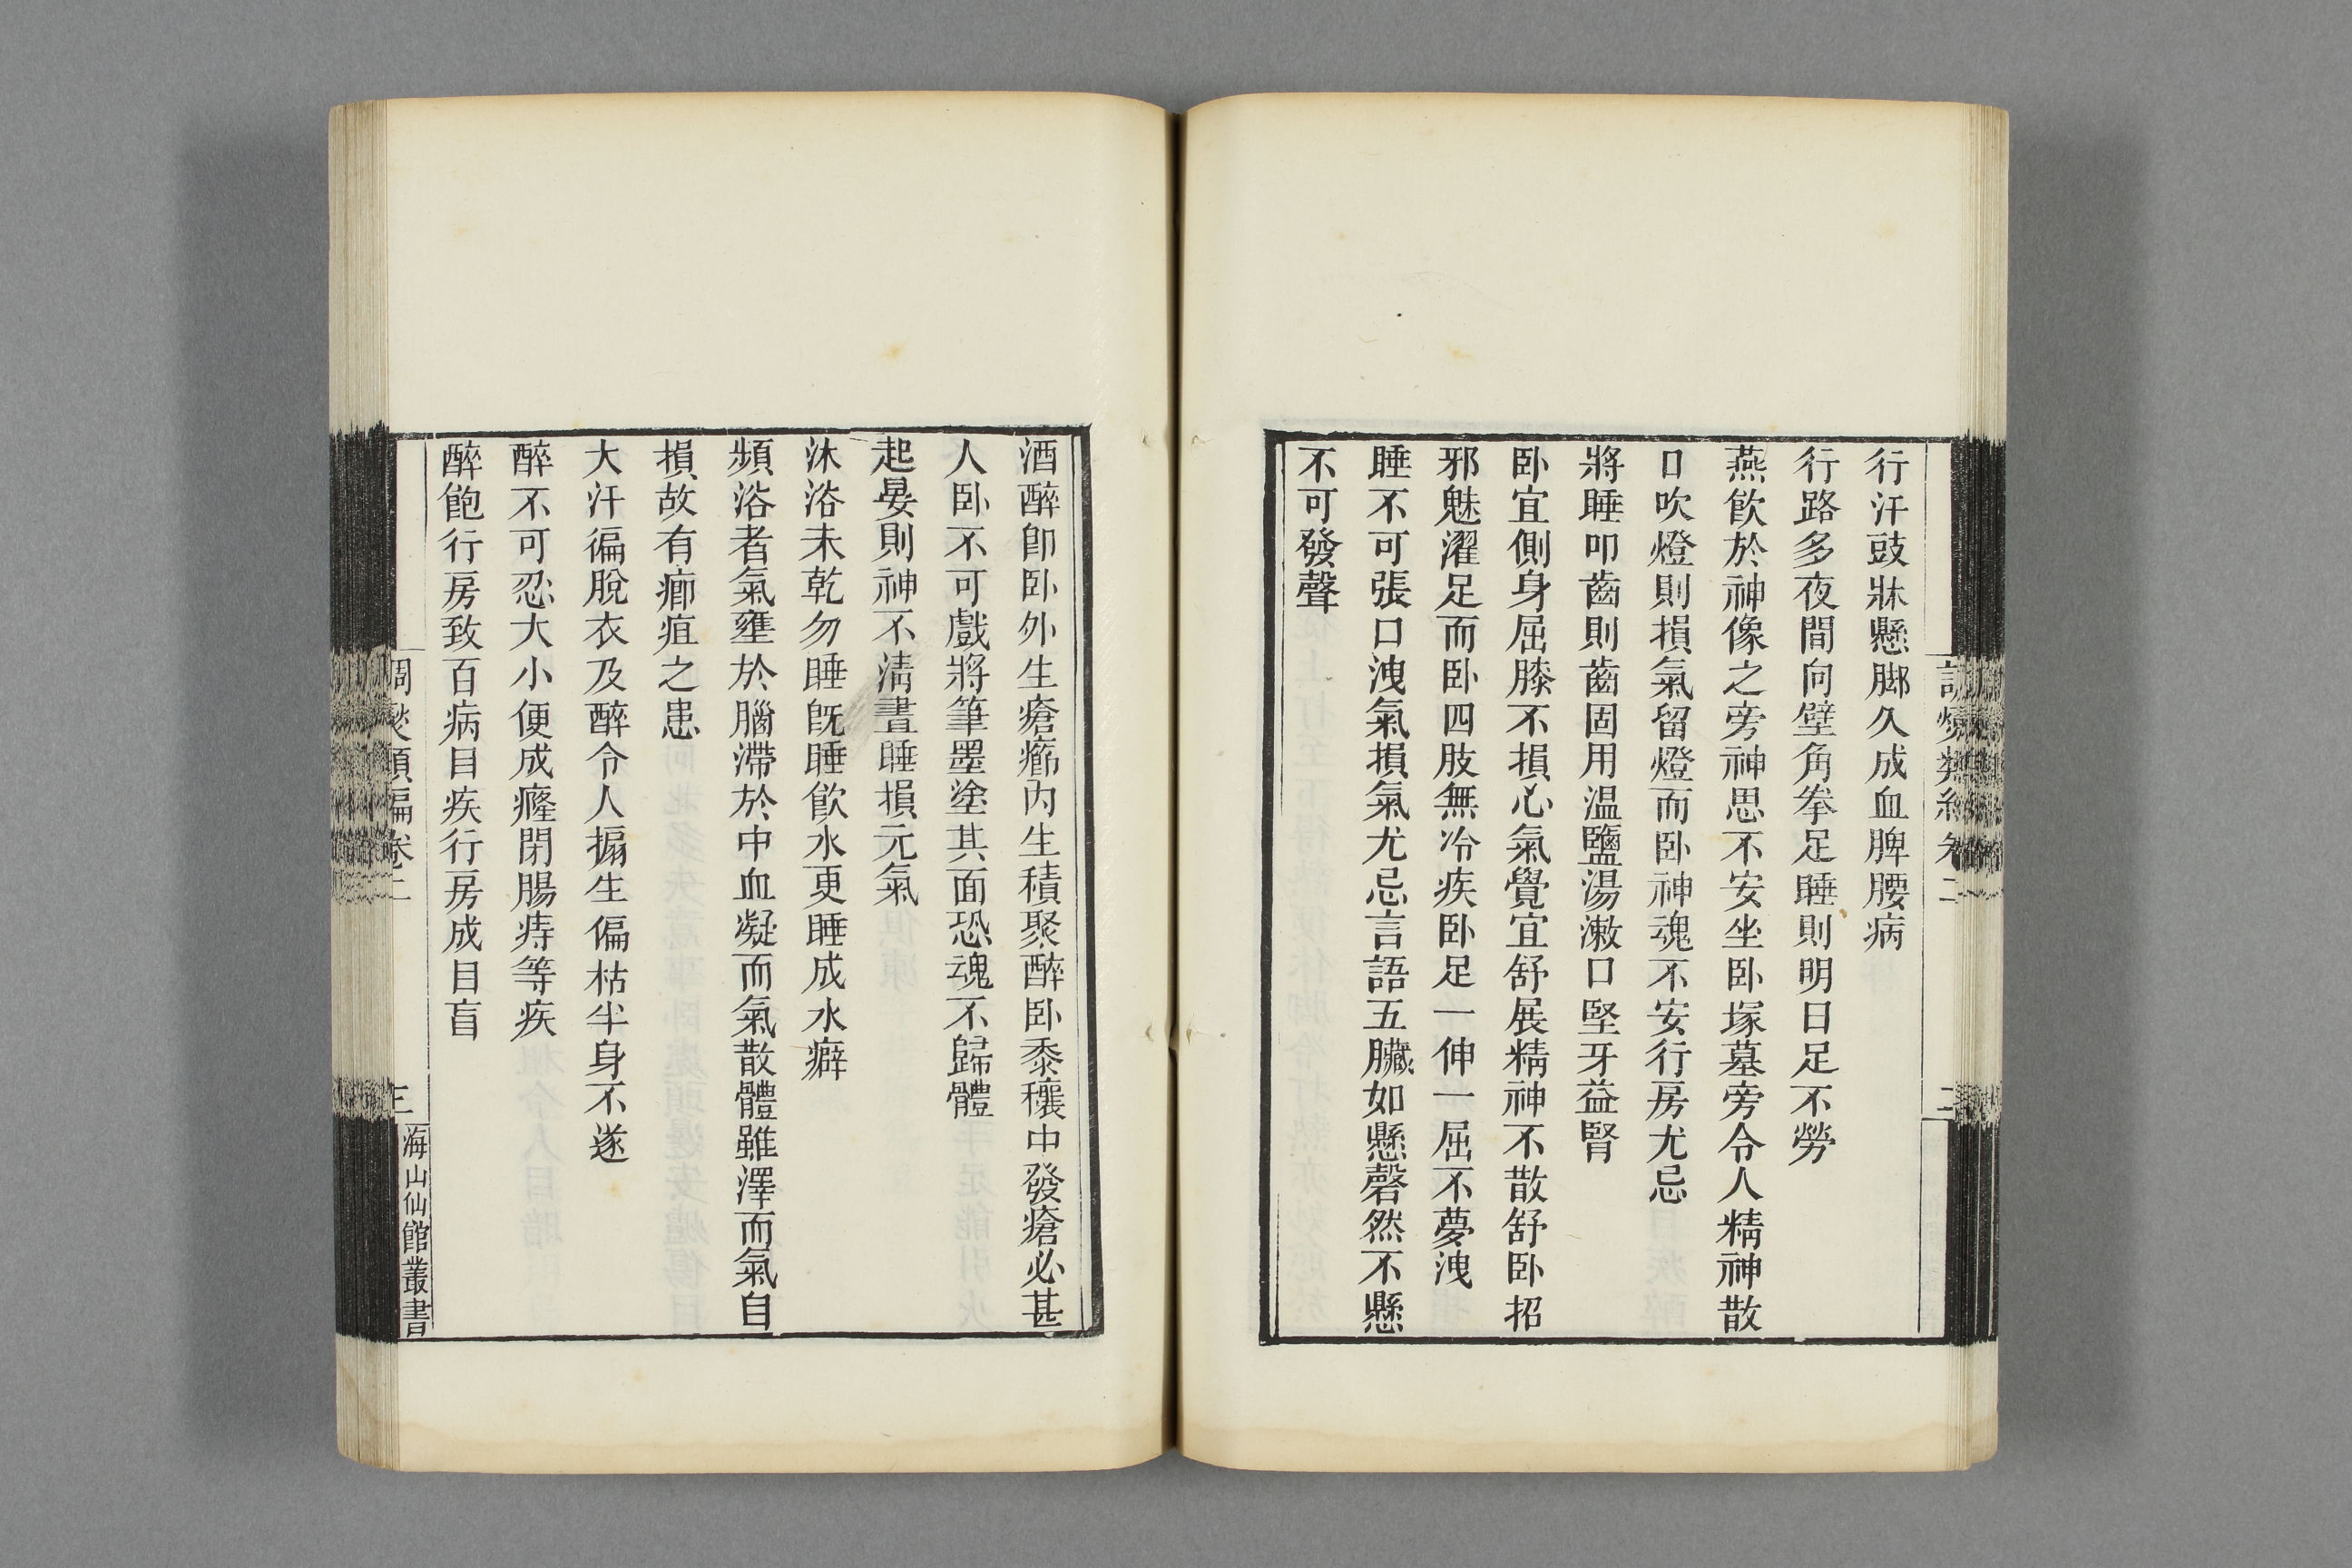 行汗豉牀懸脚久成血脾腰病
行路多夜間向壁角拳足睡則明日足不勞
燕飮於神像之旁神思不安坐卧塚墓旁令人精神散
口吹燈則損氣留燈而卧神魂不安行房尤忌
將睡叩齒則齒固用温鹽湯漱口堅牙益腎
卧宜側身屈膝不損心氣覺宜舒展精神不散舒卧招
邪魅濯足而卧四肢無冷疾卧足一伸一屈不夢洩
睡不可張口洩氣損氣尤忌言語五臟如懸磬然不懸
不可發聲
酒醉卽卧外生瘡癤内生積聚醉卧黍穰中發瘡必甚
人卧不可戲將筆墨塗其面恐魂不歸體
起晏則神不淸晝睡損元氣
沐浴未乾勿睡旣睡飮水更睡成水癖
頻浴者氣壅於腦滯於中血凝而氣散體雖澤而氣自
損故有癤疽之患
大汗徧脫衣及醉令人搧生偏枯半身不遂
醉不可忍大小便成癃閉腸痔等疾
醉飽行房致百病目疾行房成目盲
三
海山仙館叢書